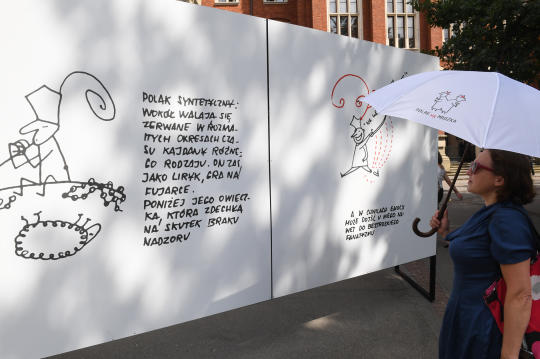 POLAK SYNTETYCZNY:
WOKÓŁ WALAJĄ SIĘ
ZERWANE W ROZMA-
ITYCH OKRESACH CZA-
SU KAJDANY RÓŻNE-
GO RODZAJU. ON ZAŚ,
JAKO LIRYK, GRA NA
FUJARCE.
PONIŻEJ JEGO OWIECZ-
KA, KTÓRA ZDECHŁA
NA SKUTEK BRAKU
NADZORU
A W CHWILACH EMOCJI
MOŻE DOJŚĆ U NIEGO NA-
WET DO BEZBRZEŻNEGO
FANATYZMU
POLAK MAŁY MROŻKA